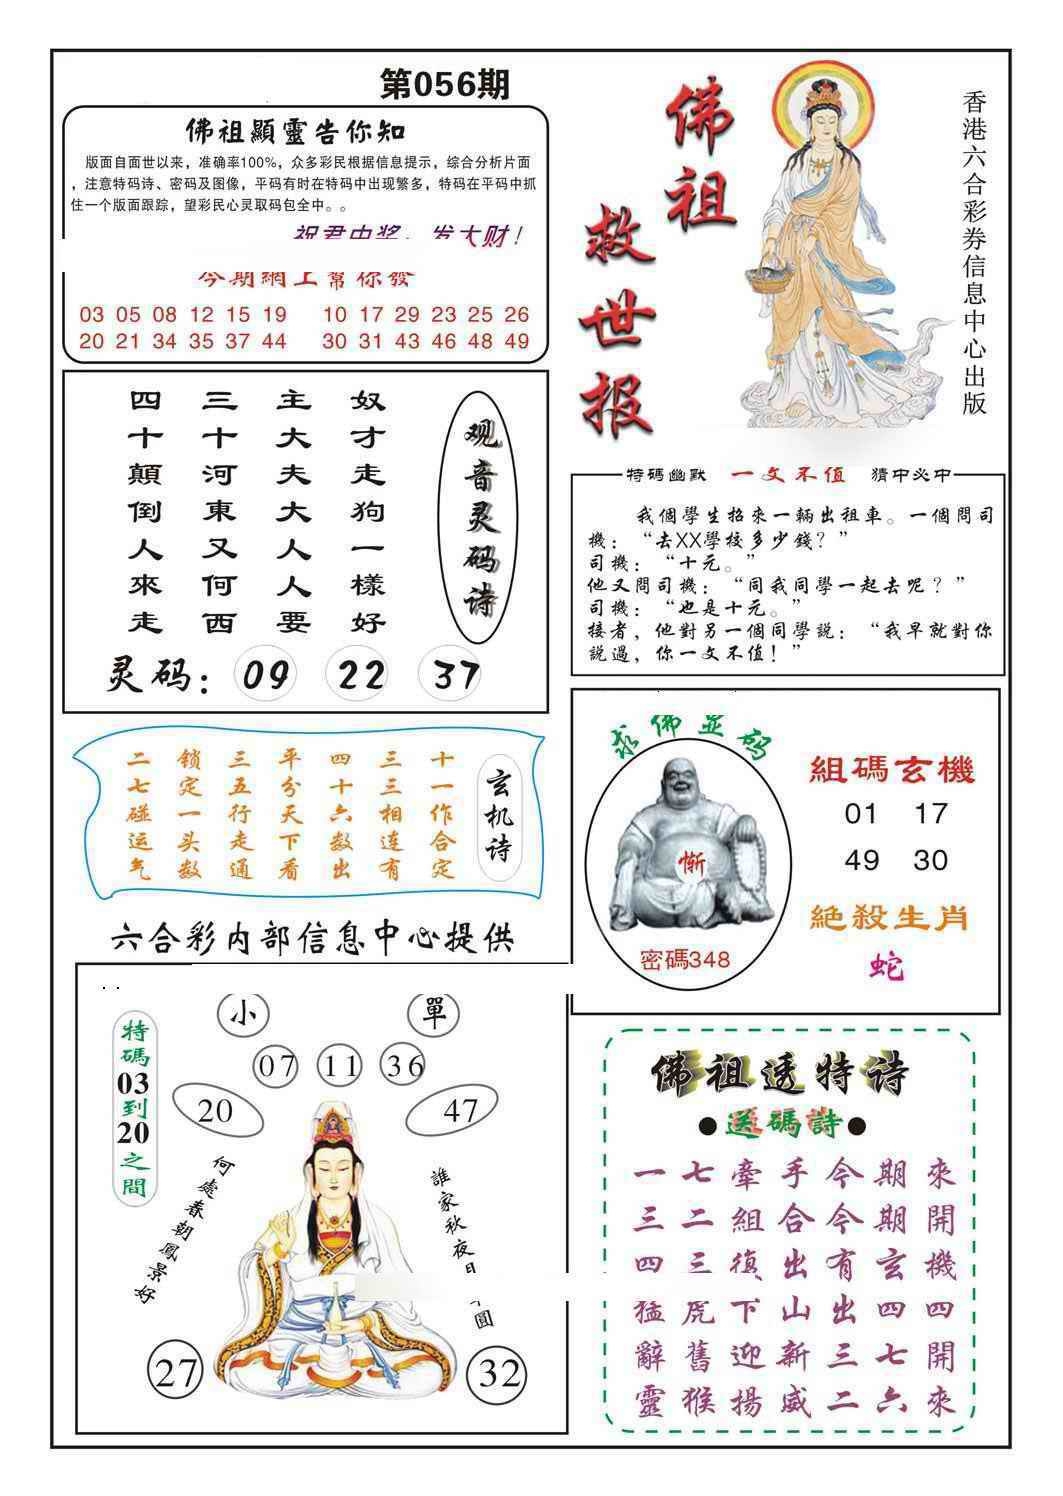 第056期
佛祖顯靈告你知
版面自面世以来，准确率100%，众多彩民根据信息提示，综合分析片面
，注意特码诗、密码及图像，平码有时在特码中出现繁多，特码在平码中抓
住一个版面跟踪，望彩民心灵取码包全中。。
祝君中奖，发大财！
今期網上幫你發
03 05 08 12 15 19 10 17 29 23 25 26
20 21 34 35 37 44 30 31 43 46 48 49
佛祖救世报
香港六合彩券信息中心出版
观音灵码诗
奴才走狗一樣好
主大夫大人人要
三十河東又何西
四十顛倒人來走
灵码：09 22 37
特碼幽默 一文不值 猜中必中
我個學生招來一輛出租車。一個問司
機：“去XX學校多少錢？”
司機：“十元。”
他又問司機：“同我同學一起去呢？”
司機：“也是十元。”
接者，他對另一個同學説：“我早就對你
説過，你一文不值！”
玄机诗
十一作合定
三三相连有
四十六数出
平分天下看
三五行走通
锁定一头数
二七碰运气
求佛显码
惭
密碼348
組碼玄機
01 17
49 30
絶殺生肖
蛇
六合彩内部信息中心提供
特碼03到20之間
小 單
07 11 36
20 47
何處春朝鳳景好
誰家秋夜月
圓
27 32
佛祖透特诗
●送碼詩●
一七牽手今期來
三二組合今期開
四三復出有玄機
猛虎下山出四四
辭舊迎新三七開
靈猴揚威二六來